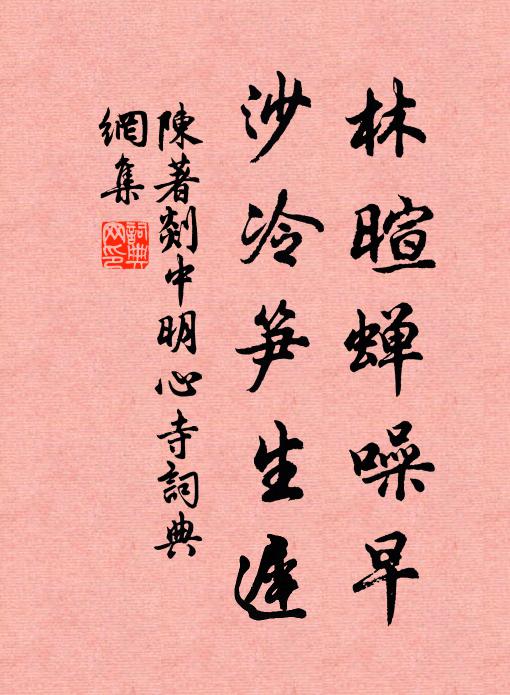 林暄蝉噪早
沙冷笋生遲
陳著剡中明心寺詞典
網集
詞典
网印